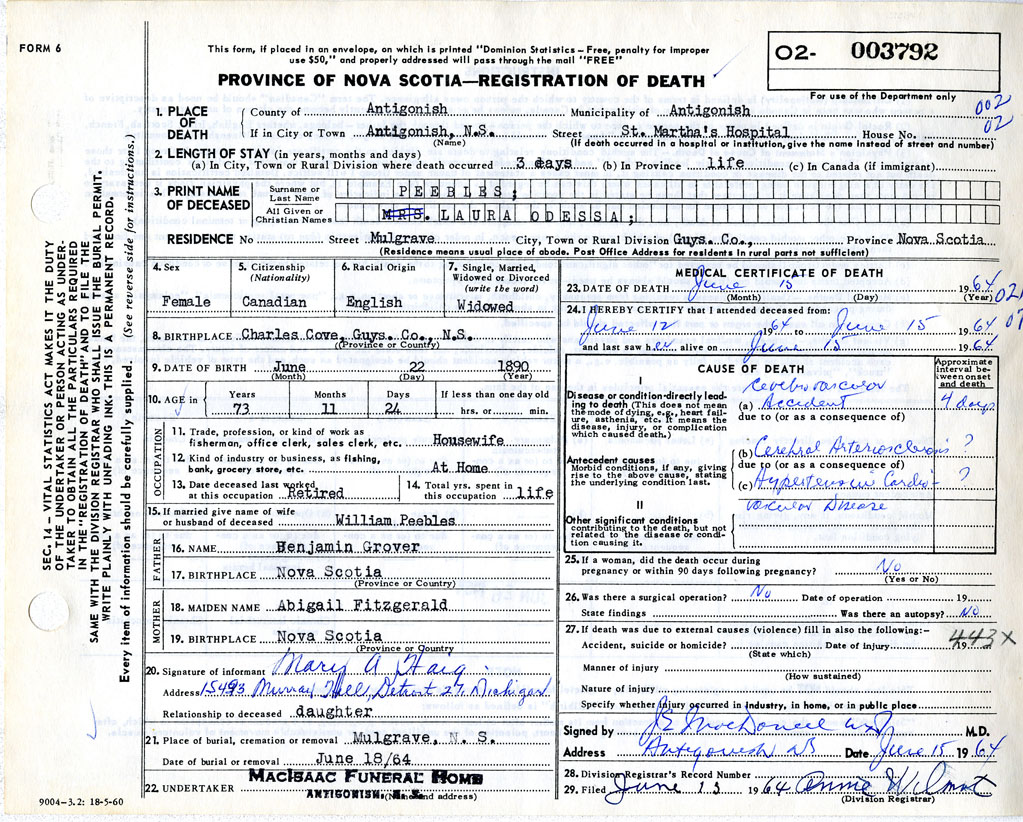 FORM 6
This form, if placed in an envelope, on which is printed "Dominion Statistics – Free, penalty for improper
use $50," and properly addressed will pass through the mail "FREE"
PROVINCE OF NOVA SCOTIA—REGISTRATION OF DEATH
02- 003792
For use of the Department only
002
02
SEC. 14 – VITAL STATISTICS ACT MAKES IT THE DUTY
OF THE UNDERTAKER OR PERSON ACTING AS UNDER-
TAKER TO OBTAIN ALL THE PARTICULARS REQUIRED
IN THE "REGISTRATION OF DEATH" AND TO FILE THE
SAME WITH THE DIVISION REGISTRAR WHO SHALL ISSUE THE BURIAL PERMIT.
WRITE PLAINLY WITH UNFADING INK. THIS IS A PERMANENT RECORD.
Every item of information should be carefully supplied. (See reverse side for instructions.)
1. PLACE OF DEATH
County of Antigonish Municipality of Antigonish
If in City or Town Antigonish, N.S. Street St. Martha's Hospital House No.
(Name) (If death occurred in a hospital or institution, give the name instead of street and number)
2. LENGTH OF STAY (in years, months and days)
(a) In City, Town or Rural Division where death occurred 3 days (b) In Province life (c) In Canada (if immigrant)
3. PRINT NAME OF DECEASED
Surname or Last Name PEEBLES;
All Given or Christian Names MRS. LAURA ODESSA;
RESIDENCE No Street Mulgrave City, Town or Rural Division Guys. Co., Province Nova Scotia
(Residence means usual place of abode. Post Office Address for residents in rural parts not sufficient)
4. Sex Female
5. Citizenship (Nationality) Canadian
6. Racial Origin English
7. Single, Married, Widowed or Divorced (write the word) Widowed
8. BIRTHPLACE Charles Cove, Guys. Co., N.S.
(Province or Country)
9. DATE OF BIRTH June 22 1890
(Month) (Day) (Year)
10. AGE in Years 73 Months 11 Days 24 If less than one day old hrs. or min.
OCCUPATION
11. Trade, profession, or kind of work as
fisherman, office clerk, sales clerk, etc. Housewife
12. Kind of industry or business, as fishing,
bank, grocery store, etc. At Home
13. Date deceased last worked
at this occupation Retired
14. Total yrs. spent in
this occupation life
15. If married give name of wife
or husband of deceased William Peebles
FATHER
16. NAME Benjamin Grover
17. BIRTHPLACE Nova Scotia
(Province or Country)
MOTHER
18. MAIDEN NAME Abigail Fitzgerald
19. BIRTHPLACE Nova Scotia
(Province or Country)
20. Signature of informant Mary A. Haig
Address 15493 Murray Hill, Detroit 27, Michigan
Relationship to deceased daughter
21. Place of burial, cremation or removal Mulgrave, N. S.
Date of burial or removal June 18/64
22. UNDERTAKER MacIsaac Funeral Home
ANTIGONISH, N. S.
(Name and address)
9004–3.2: 18-5-60
MEDICAL CERTIFICATE OF DEATH
23. DATE OF DEATH June 15 1964
(Month) (Day) (Year)
24. I HEREBY CERTIFY that I attended deceased from:
June 12 1964 to June 15 1964
and last saw her alive on June 15 1964
CAUSE OF DEATH
Approximate interval between onset and death
I
Disease or condition directly leading to death (This does not mean the mode of dying, e.g., heart failure, asthenia, etc. It means the disease, injury, or complication which caused death.)
(a) Cerebrovascular Accident 4 days
due to (or as a consequence of)
Antecedent causes
Morbid conditions, if any, giving rise to the above cause, stating the underlying condition last.
(b) Cerebral Arteriosclerosis ?
due to (or as a consequence of)
(c) Hypertensive Cardio- ?
vascular Disease
II
Other significant conditions
contributing to the death, but not related to the disease or condition causing it.
25. If a woman, did the death occur during
pregnancy or within 90 days following pregnancy? No
(Yes or No)
26. Was there a surgical operation? No Date of operation 19
State findings Was there an autopsy? No
27. If death was due to external causes (violence) fill in also the following:–
443X
Accident, suicide or homicide? Date of injury 19
(State which)
Manner of injury
(How sustained)
Nature of injury
Specify whether injury occurred in industry, in home, or in public place
Signed by M.D.
Address Antigonish NS Date June 15 1964
28. Division Registrar's Record Number
29. Filed June 15 1964 Annie Wilmot
(Division Registrar)